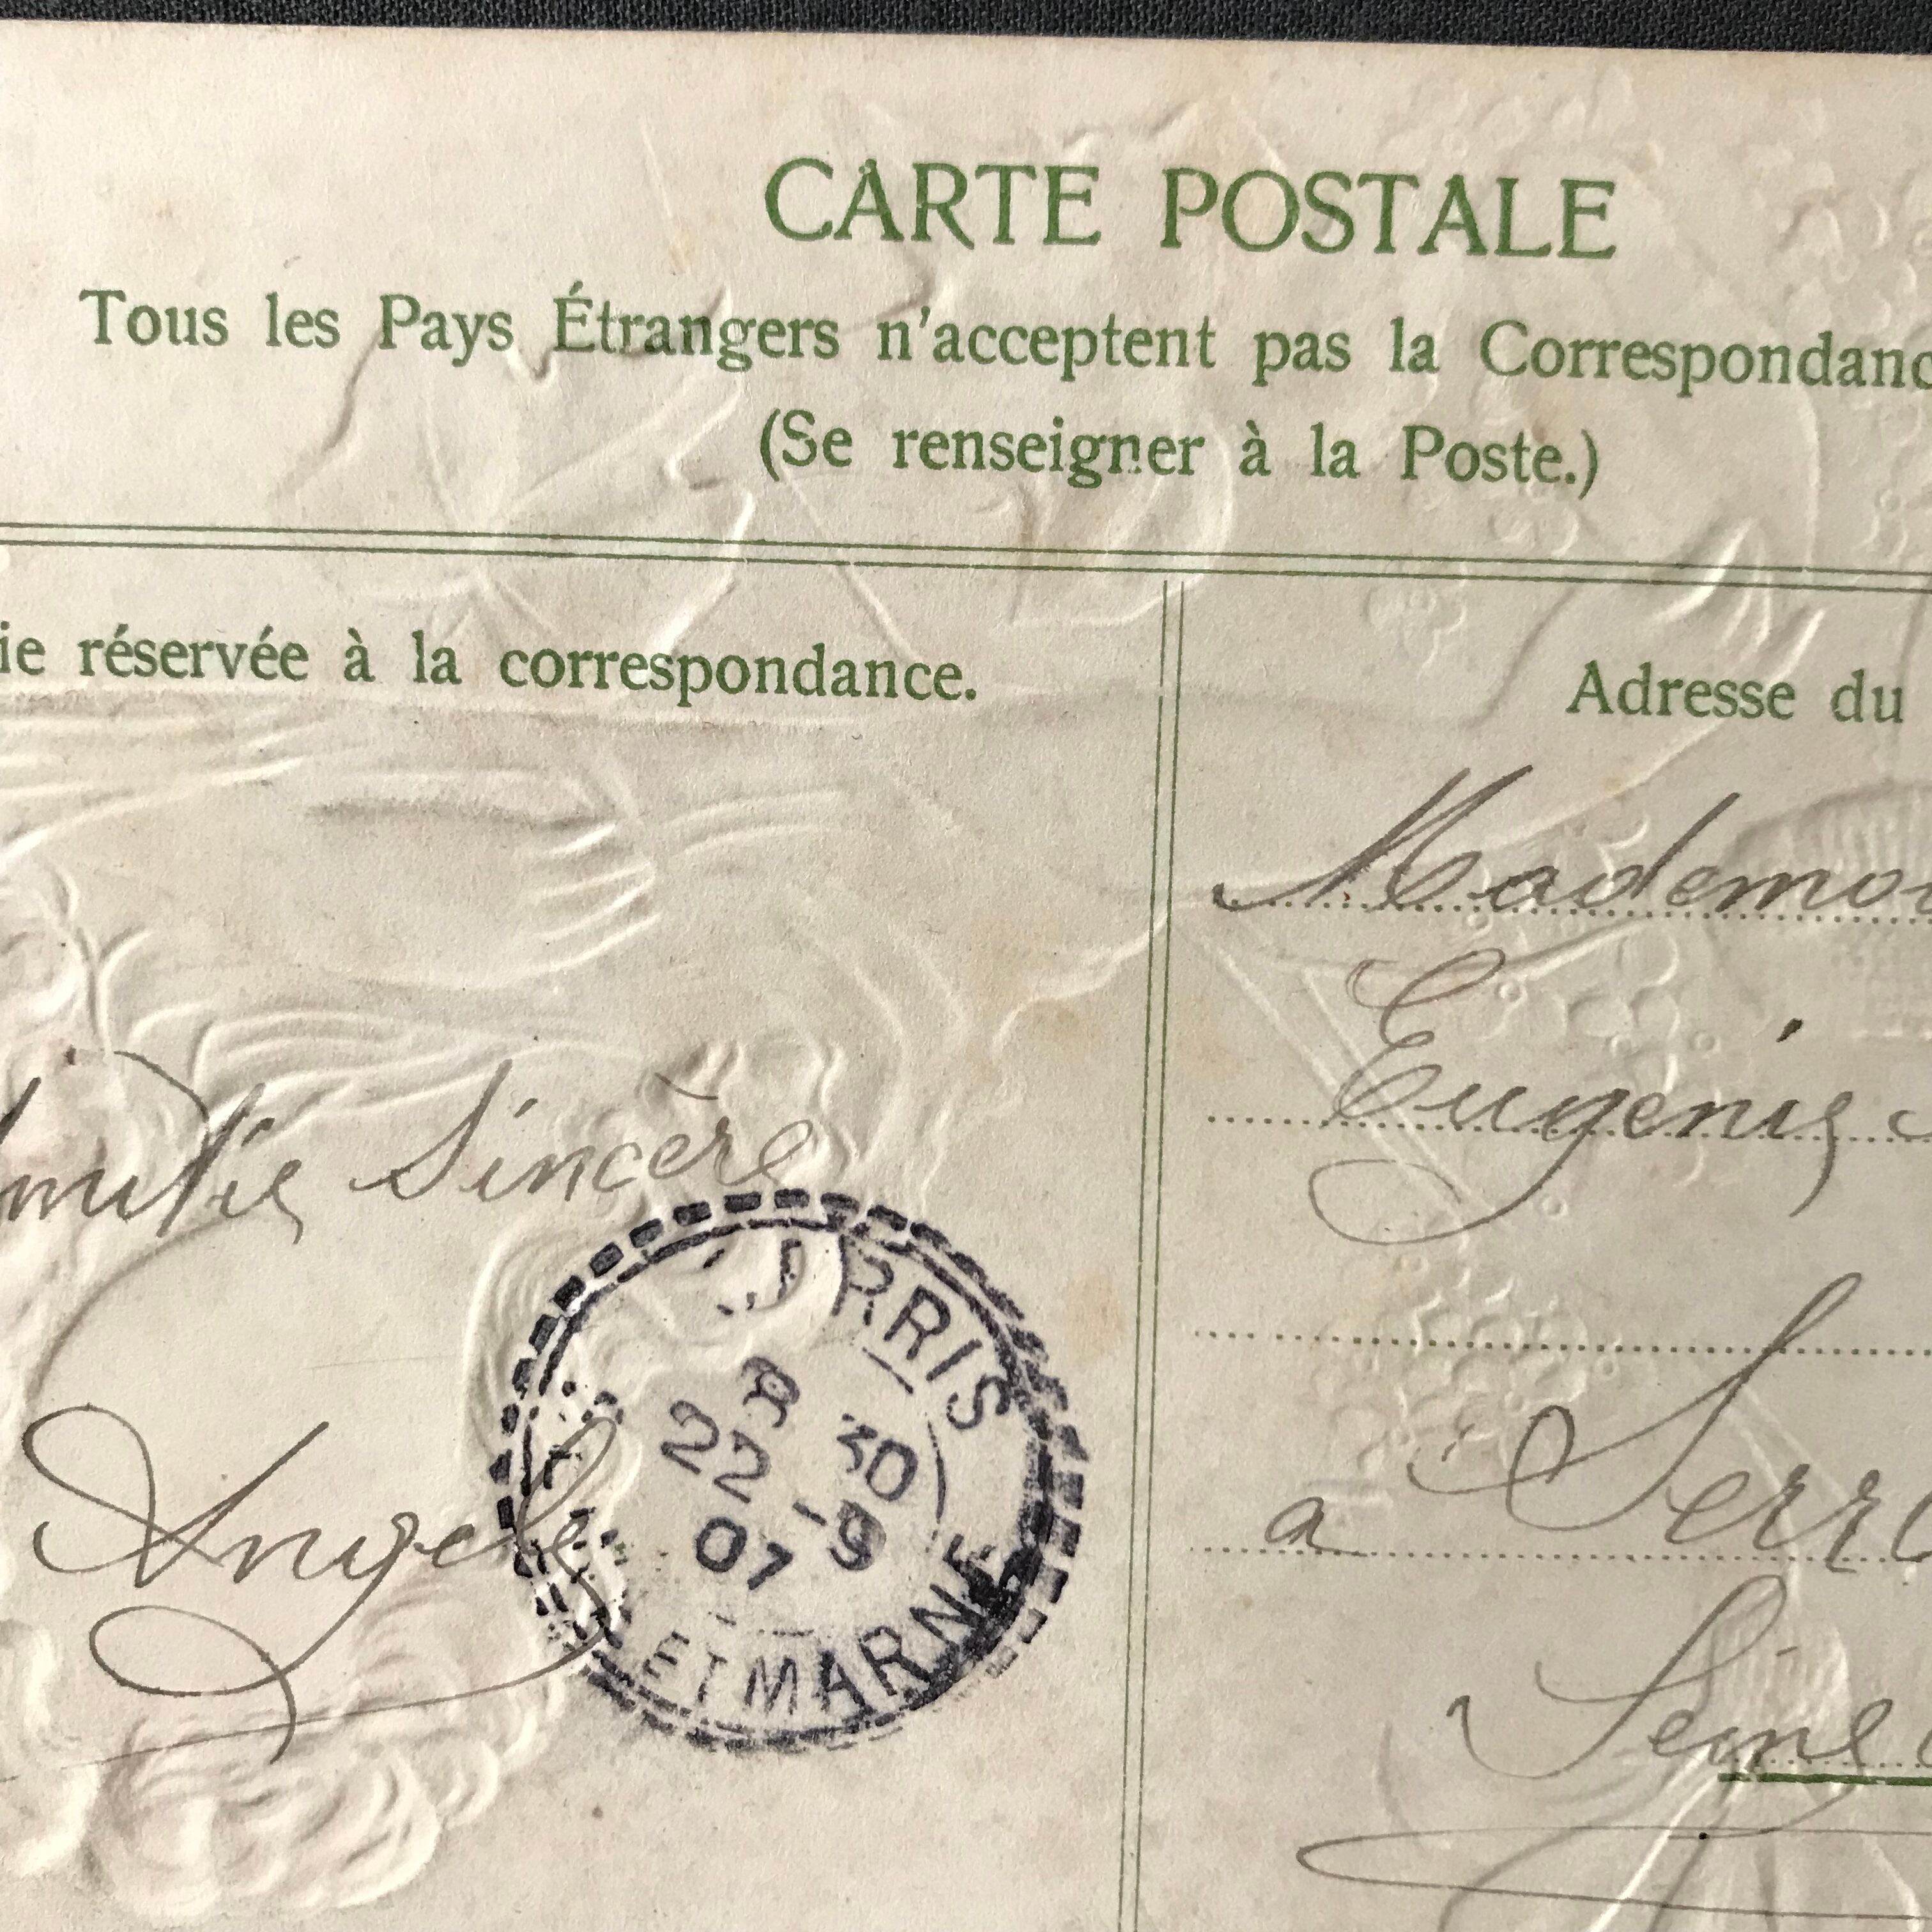 CARTE POSTALE
Tous les Pays Étrangers n'acceptent pas la Correspondanc
(Se renseigner à la Poste.)
ie réservée à la correspondance.
mitié Sincère
Angele
Adresse du
Mademoi
Eugenie
a Serr
Seine
8 30
22 -9
07
ET MARNE